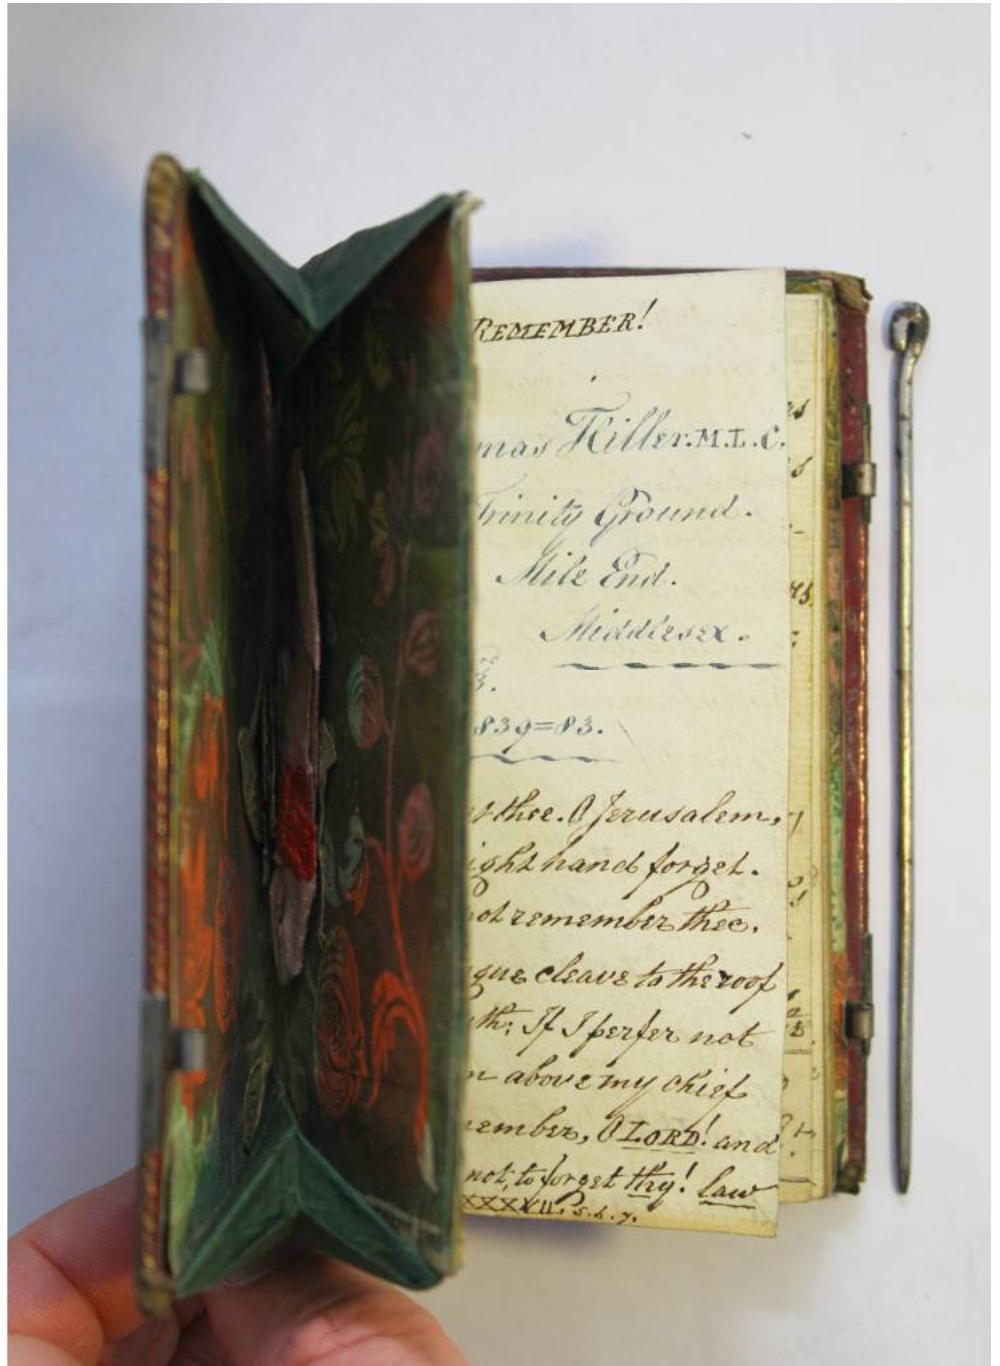 REMEMBER!
mas Hiller. M. L. C.
Trinity Ground.
Mile End.
Middlesex.
3.
839=83.
thee. O Jerusalem,
ight hand forget.
not remember thee.
gue cleave to the roof
th: If I perfer not
m above my chief
ember, O LORD! and
not, to forget thy! law
XXXVII. 5. 6. 7.